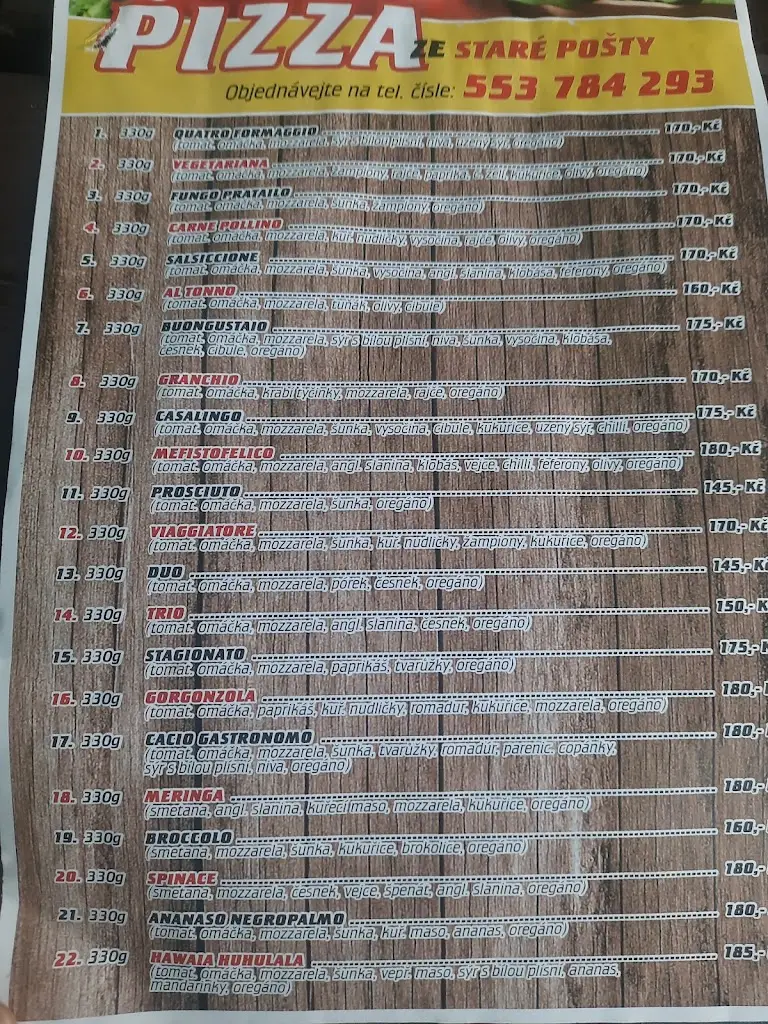 PIZZA ZE STARÉ POŠTY
Objednávejte na tel. čísle: 553 784 293
1. 330g QUATRO FORMAGGIO 170,-Kč
(tomat. omáčka, mozzarela, sýr s bílou plísní, niva, uzený sýr, oregáno)
2. 330g VEGETARIANA 170,-Kč
(tomat. omáčka, mozzarela, žampiony, rajče, paprika, č. zelí, kukuřice, olivy, oregáno)
3. 330g FUNGO PRATAILO 170,-Kč
(tomat. omáčka, mozzarela, šunka, žampiony, oregáno)
4. 330g CARNE POLLINO 170,-Kč
(tomat. omáčka, mozzarela, kuř. nudličky, vysočina, rajče, olivy, oregáno)
5. 330g SALSICCIONE 170,-Kč
(tomat. omáčka, mozzarela, šunka, vysočina, angl. slanina, klobása, feferony, oregáno)
6. 330g AL TONNO 160,-Kč
(tomat. omáčka, mozzarela, tuňák, olivy, cibule)
7. 330g BUONGUSTAIO 175,-Kč
(tomat. omáčka, mozzarela, sýr s bílou plísní, niva, šunka, vysočina, klobása,
česnek, cibule, oregáno)
8. 330g GRANCHIO 170,-Kč
(tomat. omáčka, krabí tyčinky, mozzarela, rajče, oregáno)
9. 330g CASALINGO 175,-Kč
(tomat. omáčka, mozzarela, šunka, vysočina, cibule, kukuřice, uzený sýr, chilli, oregáno)
10. 330g MEFISTOFELICO 180,-Kč
(tomat. omáčka, mozzarela, angl. slanina, klobás, vejce, chilli, feferony, olivy, oregáno)
11. 330g PROSCIUTO 145,-Kč
(tomat. omáčka, mozzarela, šunka, oregáno)
12. 330g VIAGGIATORE 170,-Kč
(tomat. omáčka, mozzarela, šunka, kuř. nudličky, žampiony, kukuřice, oregáno)
13. 330g DUO 145,-Kč
(tomat. omáčka, mozzarela, pórek, česnek, oregáno)
14. 330g TRIO 150,-K
(tomat. omáčka, mozzarela, angl. slanina, česnek, oregáno)
15. 330g STAGIONATO 175,-K
(tomat. omáčka, mozzarela, paprikáš, tvarůžky, oregáno)
16. 330g GORGONZOLA 180,-
(tomat. omáčka, paprikáš, kuř. nudličky, romadur, kukuřice, mozzarela, oregáno)
17. 330g CACIO GASTRONOMO 180,-
(tomat. omáčka, mozzarela, šunka, tvarůžky, romadur, parenic. copánky,
sýr s bílou plísní, niva, oregáno)
18. 330g MERINGA 180,-
(smetana, angl. slanina, kuřecí maso, mozzarela, kukuřice, oregáno)
19. 330g BROCCOLO 160,-
(smetana, mozzarela, šunka, kukuřice, brokolice, oregáno)
20. 330g SPINACE 180,-
(smetana, mozzarela, česnek, vejce, špenát, angl. slanina, oregáno)
21. 330g ANANASO NEGROPALMO 180,-
(tomat. omáčka, mozzarela, šunka, kuř. maso, ananas, oregáno)
22. 330g HAWAIA HUHULALA 185,-
(tomat. omáčka, mozzarela, šunka, vepř. maso, sýr s bílou plísní, ananas,
mandarinky, oregáno)